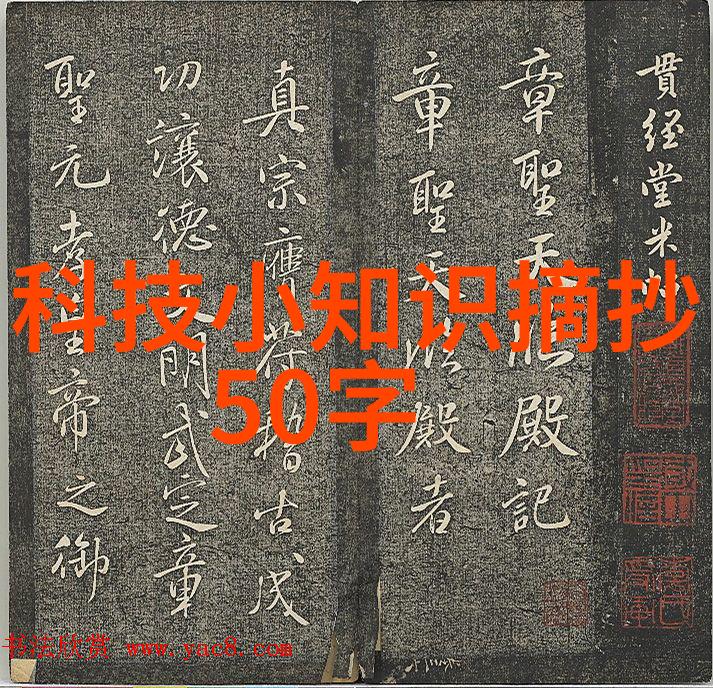 貫經堂米
章聖天臨殿記
章聖天臨殿者
真宗膺符稽古成
功讓德文明武定章
聖元孝皇帝之御
科技小知识摘抄
50字
书法欣赏 www.yac8.com